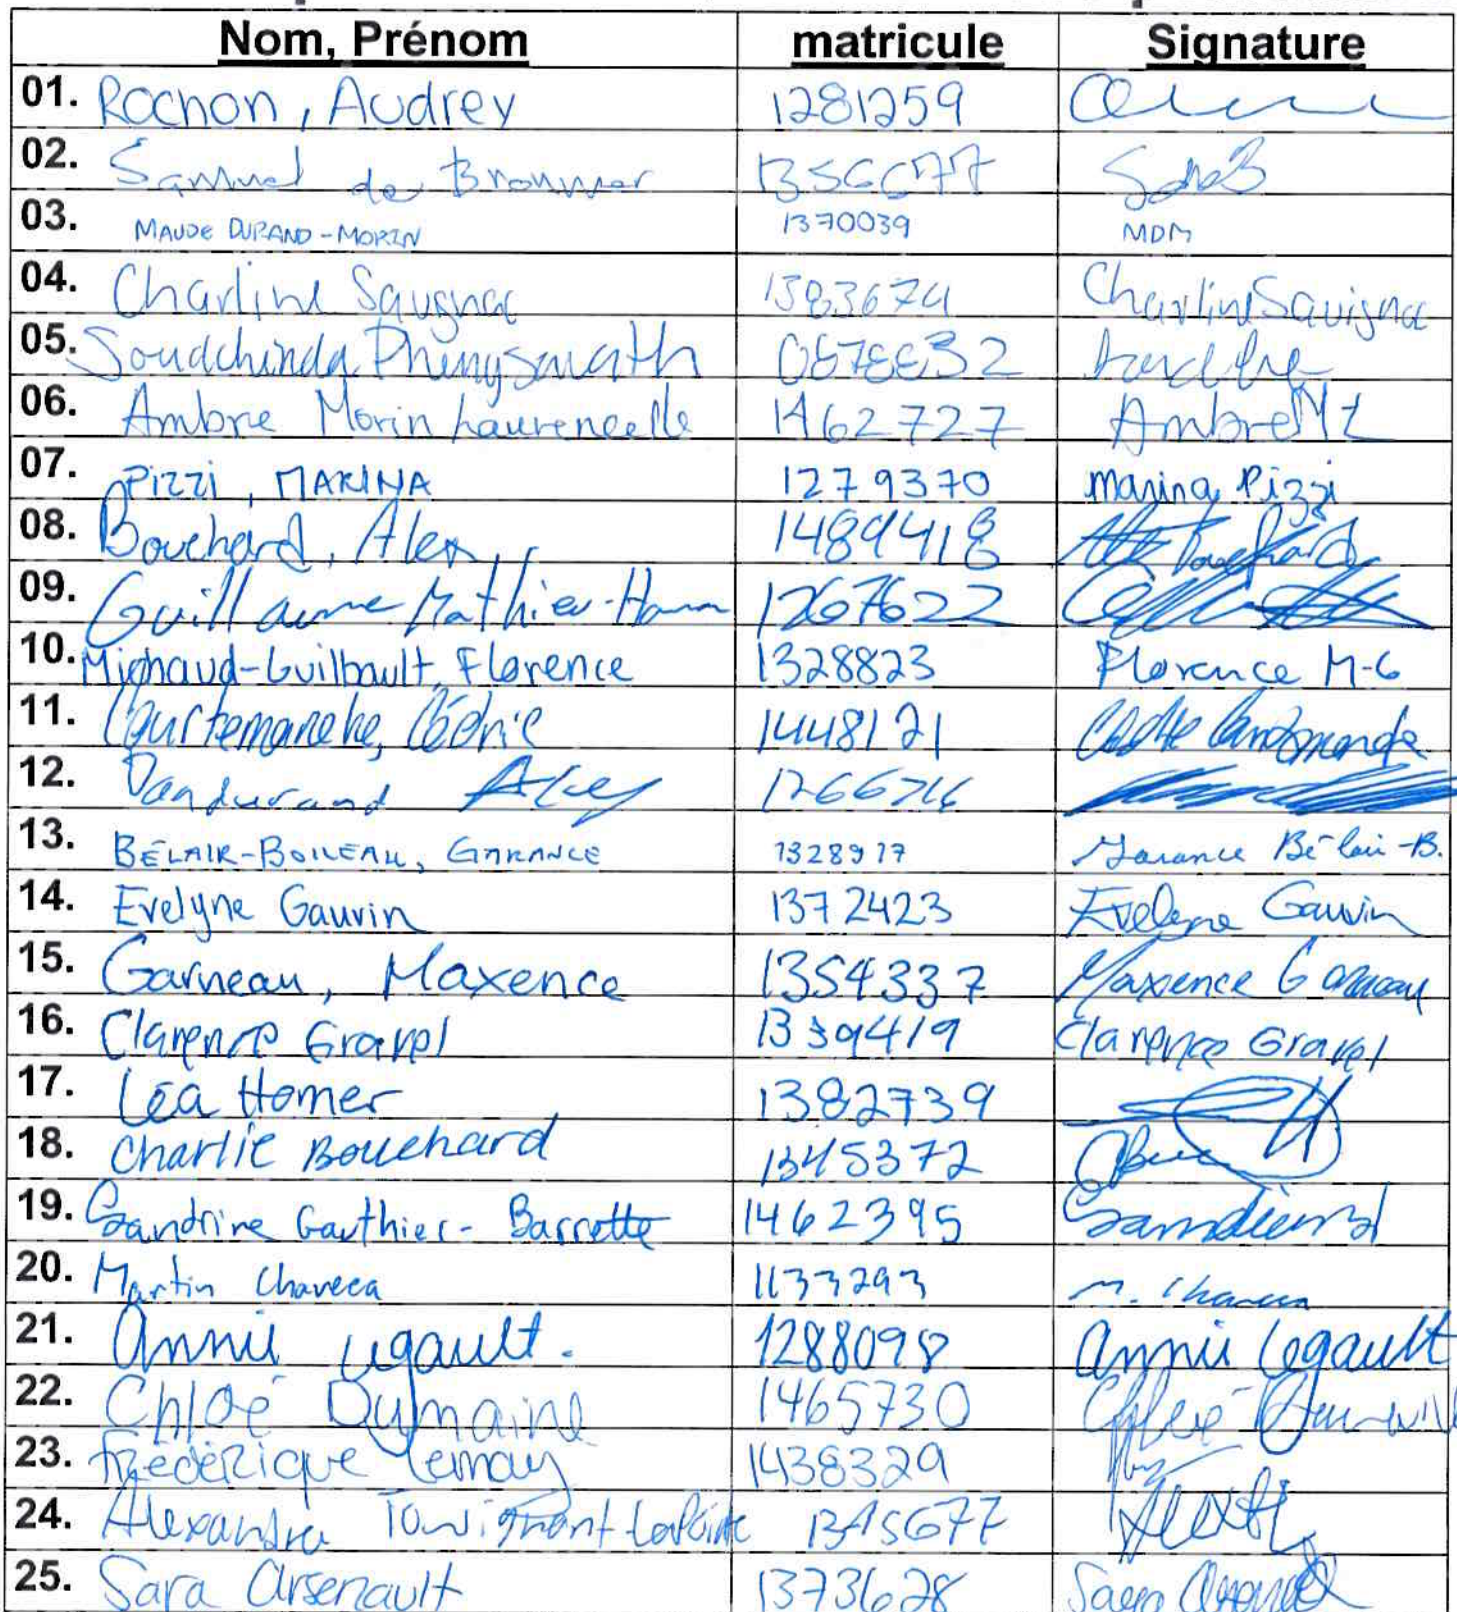 Nom, Prénom matricule Signature
01. Rochon, Audrey 1281259
02. Samuel de Brouwer 1356677 SdeB
03. MAUDE DURAND-MORIN 1370039 MDM
04. Charline Savignac 1383674 Charline Savignac
05. Soudchinda
06. Ambre Morin Laurencelle 1462727 Ambre ML
07. Pizzi, MARINA 1279370 marina Pizzi
08. Bouchard, Alex 1489418
09. Guillaume Mathieu- 1267622
10. Michaud-Guilbault, Florence 1328823 Florence M-G
11. Courtemanche, Cédric 1448121
12. Dandurand Alex
13. BÉLAIR-BOILEAU, GARANCE 1328917 Garance Bélair-B.
14. Evelyne Gauvin 1372423 Evelyne Gauvin
15. Garneau, Maxence 1354337 Maxence Garneau
16. Clarence Gravel 1339419 Clarence Gravel
17. Léa Homer 1382739
18. Charlie Bouchard 1345372
19. Sandrine Gauthier-Barrette 1462395
20. Martin 1133293 M.
21. Annie Legault. 1288098 Annie Legault
22. Chloé Dumaine 1465730 Chloé
23. Frédérique Lemay 1438329
24. Alexandra 1345677
25. Sara Arsenault 1373628 Sara Arsenault